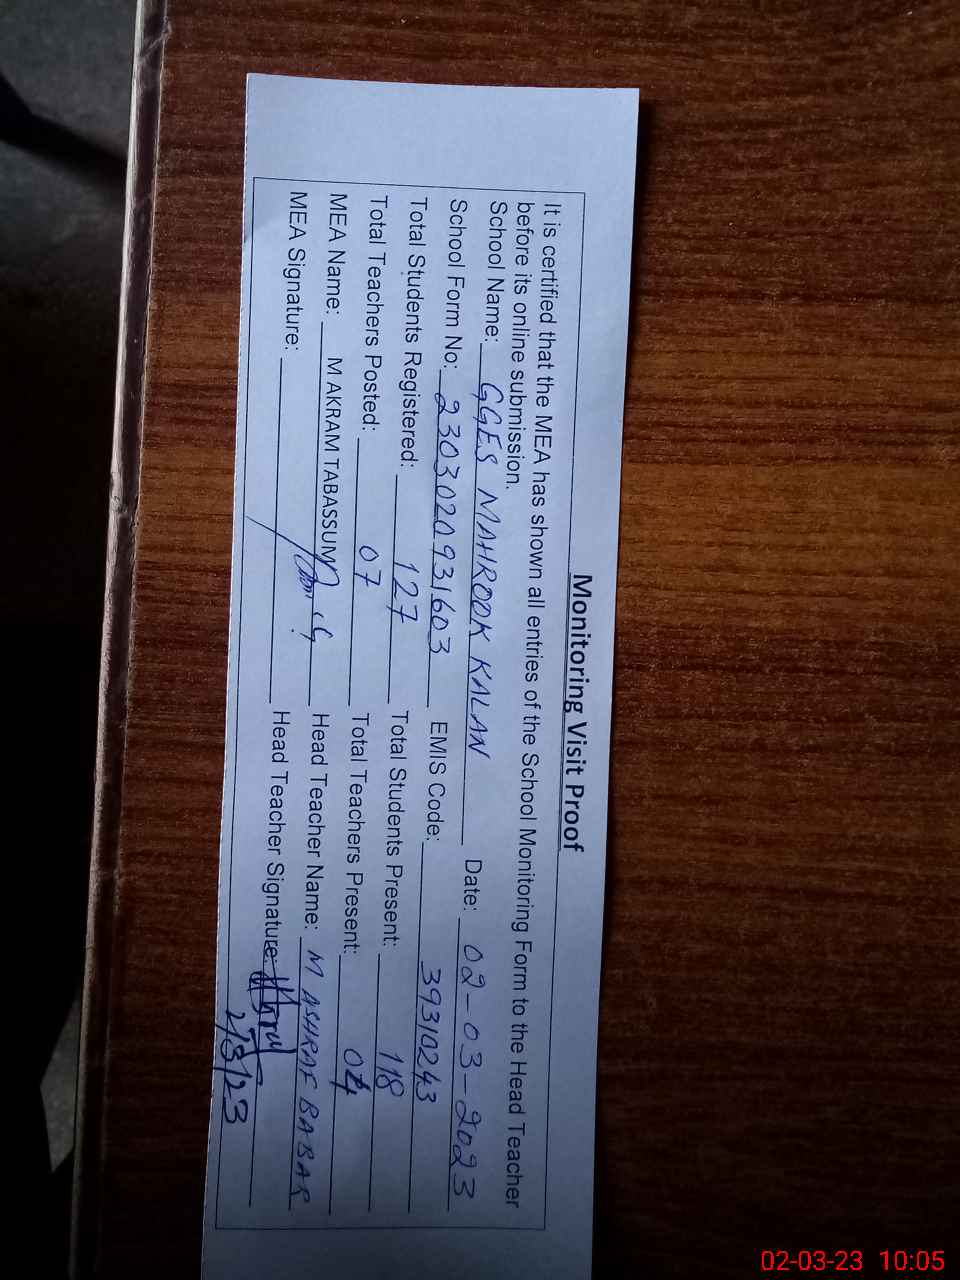 Monitoring Visit Proof
It is certified that the MEA has shown all entries of the School Monitoring Form to the Head Teacher
before its online submission.
School Name: GGES MAHROOK KALAN Date: 02-03-2023
School Form No: 230302093 1603 EMIS Code: 39310243
Total Students Registered: 127 Total Students Present: 118
Total Teachers Posted: 07 Total Teachers Present: 04
MEA Name: M AKRAM TABASSUM Head Teacher Name: M ASHRAF BABAR
MEA Signature: Head Teacher Signature:
2/3/23
02-03-23 10:05